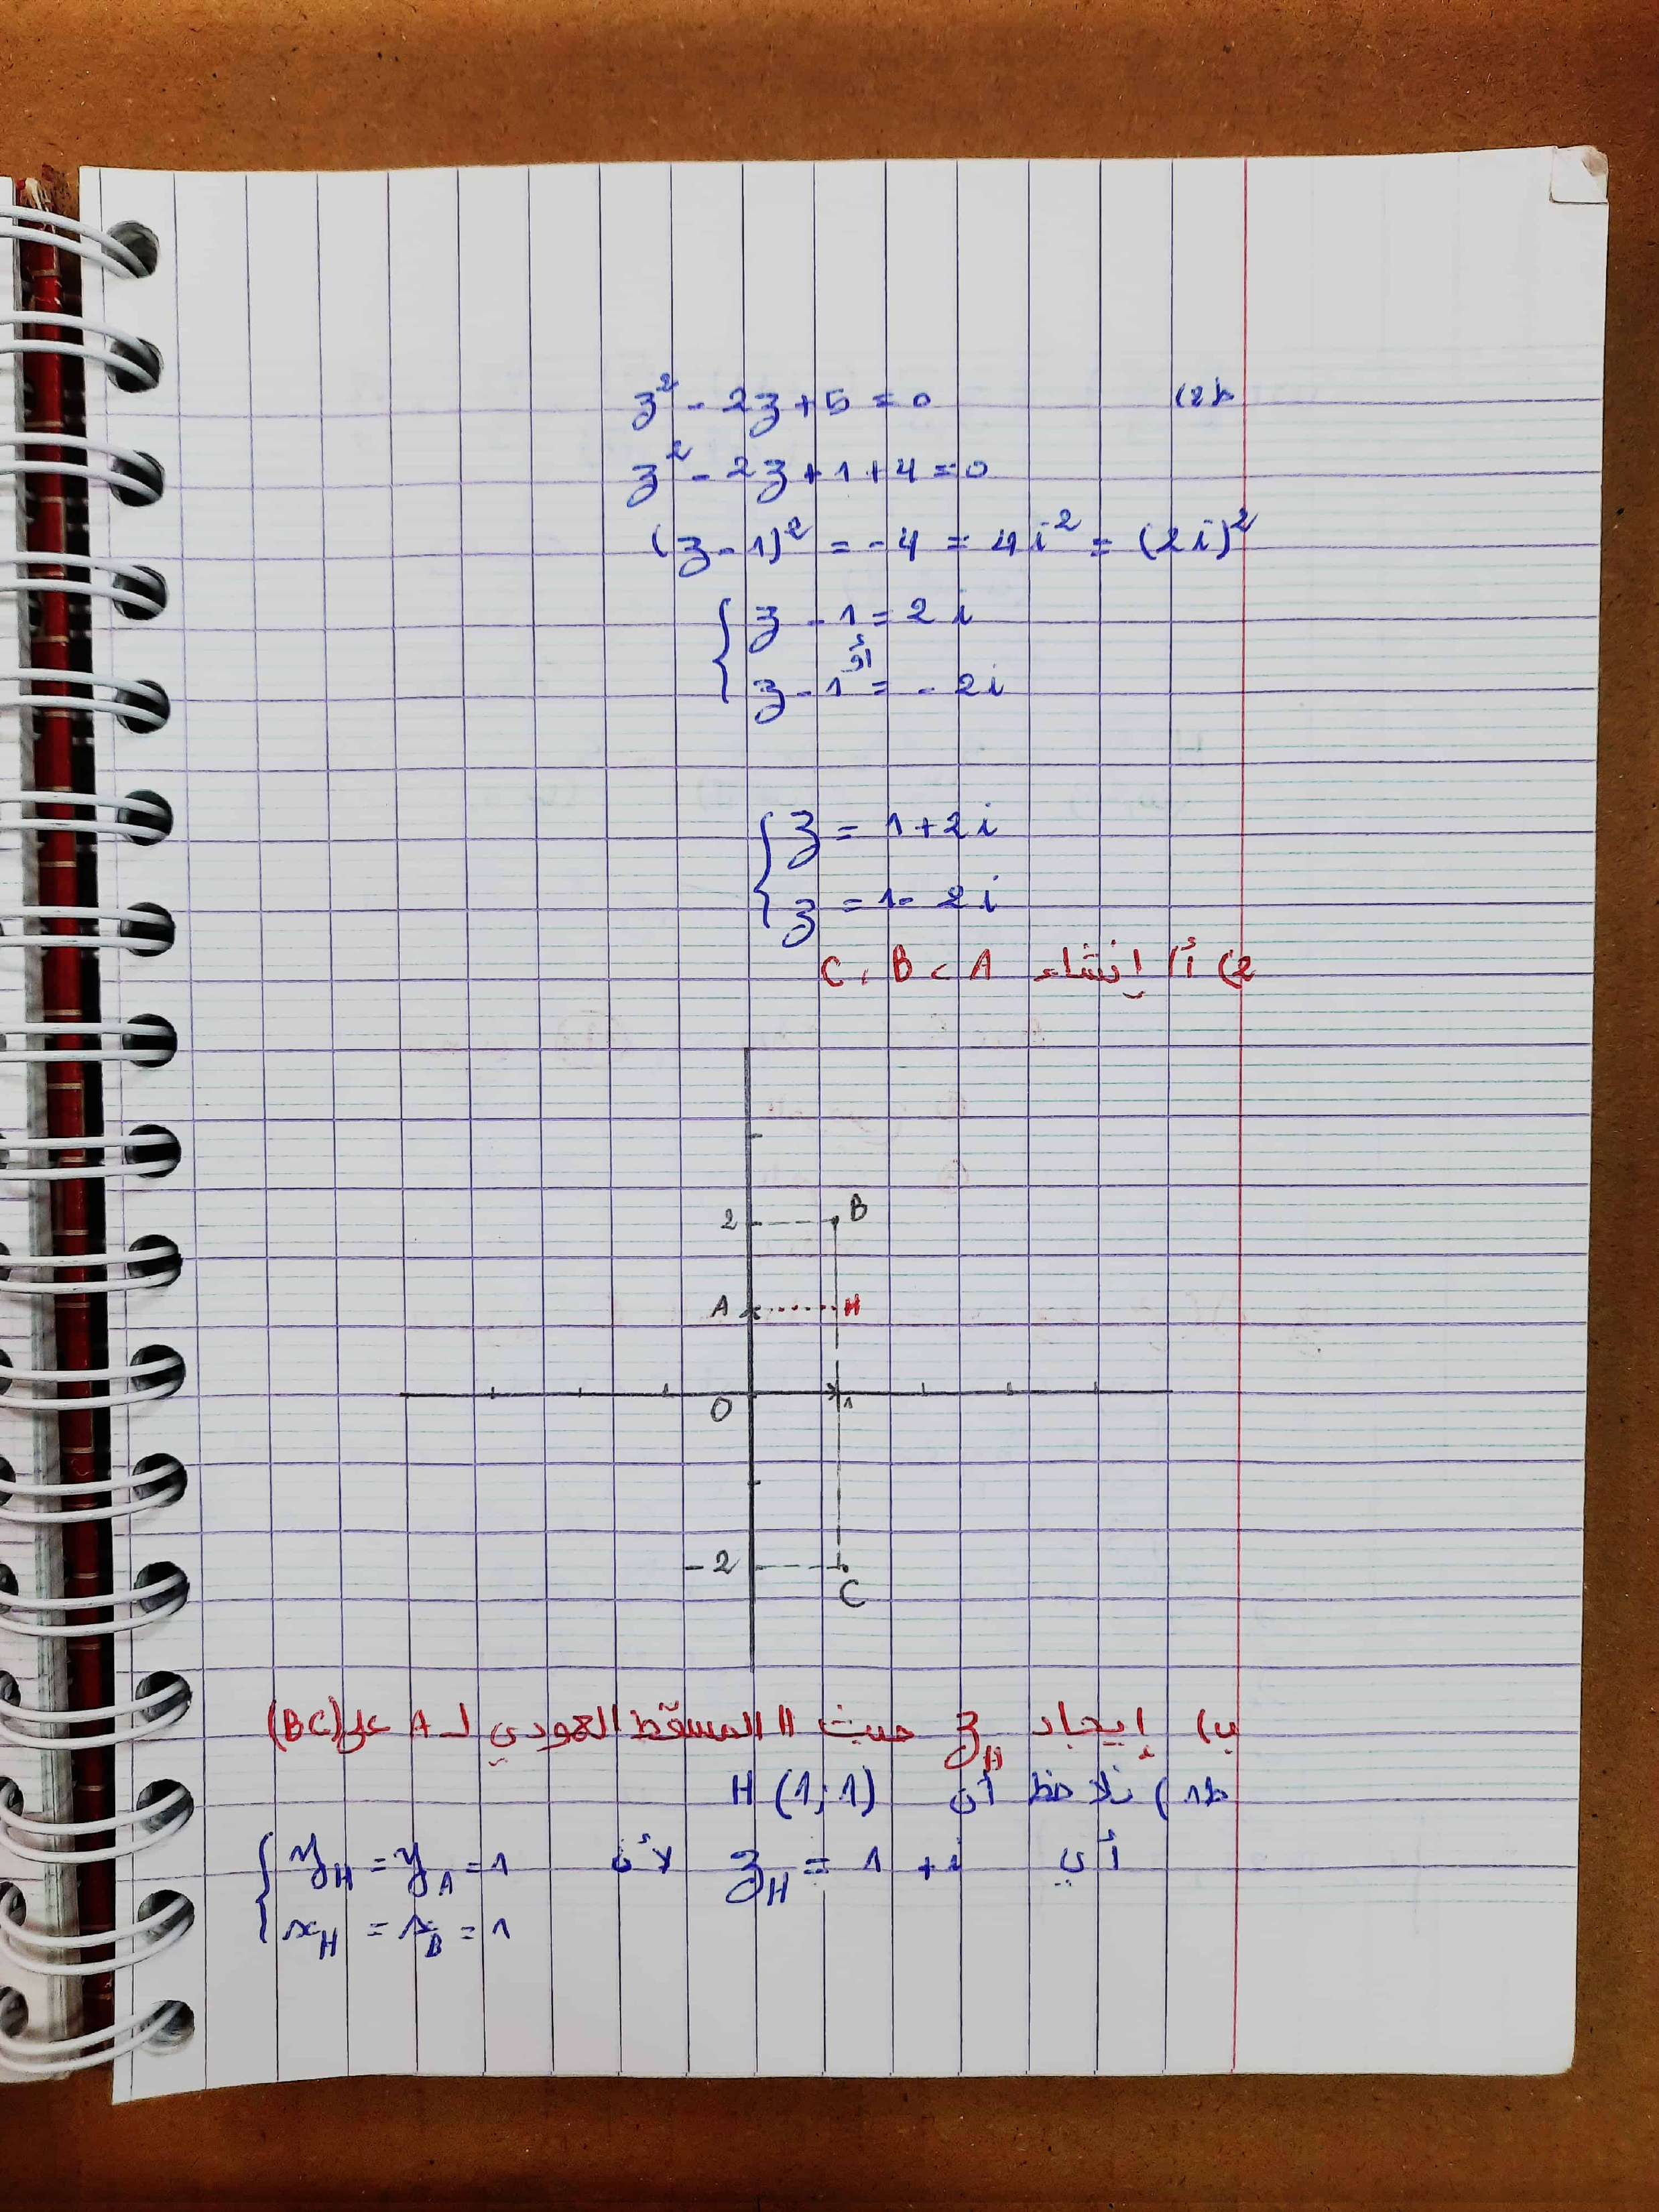 ط2) z² - 2z + 5 = 0
z² - 2z + 1 + 4 = 0
(z - 1)² = - 4 = 4i² = (2i)²
{ z - 1 = 2i
أو
z - 1 = - 2i
{ z = 1 + 2i
z = 1 - 2i
2) أ) إنشاء A ، B ، C
2 B
A H
O 1
-2
C
ب) إيجاد z_H حيث H المسقط العمودي لـ A على (BC)
ط1) نلاحظ أن H (1; 1)
أي z_H = 1 + i لأن { y_H = y_A = 1
x_H = x_B = 1